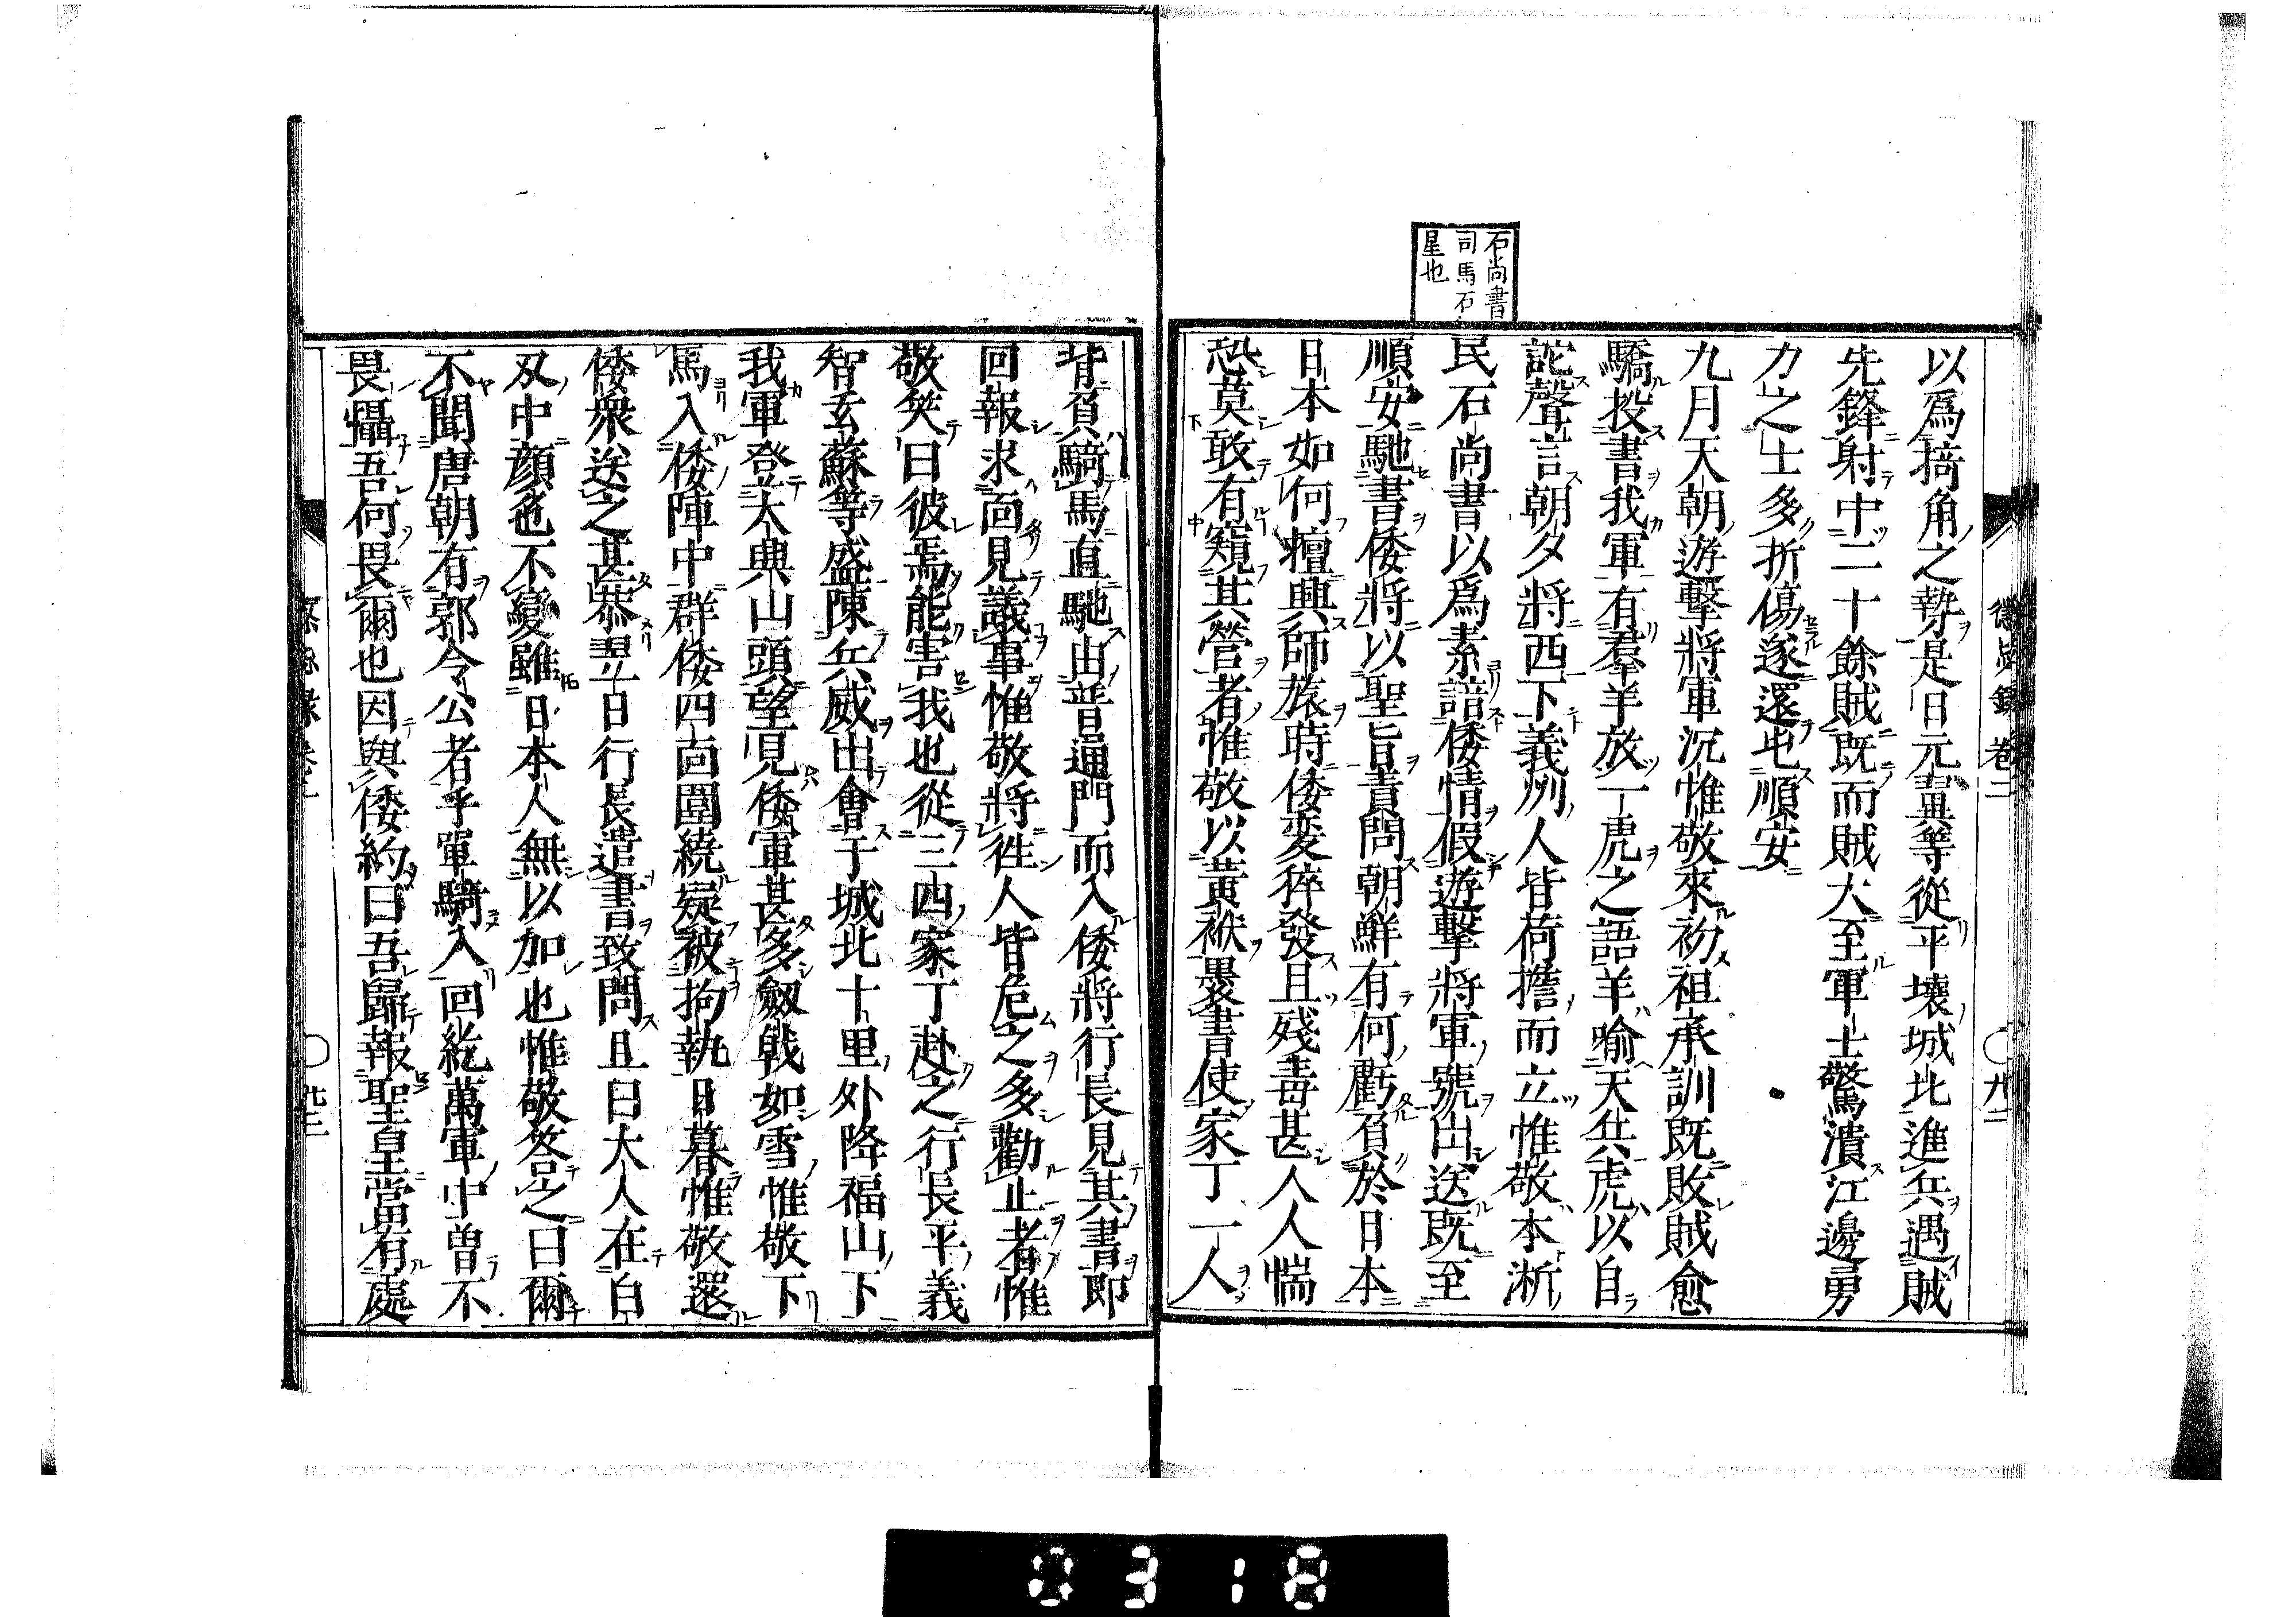 石尚書
司馬石
星也
以爲掎角之勢是日元翼等從平壤城北進兵遇賊
先鋒射中二十餘賊既而賊大至軍士驚潰江邊勇
力之士多折傷遂還屯順安
九月天朝遊擊將軍沉惟敬來初祖承訓既敗賊愈
驕投書我軍有羣羊放一虎之語羊喻天兵虎以自
詑聲言朝夕將西下義州人皆荷擔而立惟敬本浙
民石尚書以爲素諳倭情假遊擊將軍號出送既至
順安馳書倭將以聖旨責問朝鮮有何虧負於日本
日本如何擅興師旅時倭変猝發且殘毒甚人人惴
恐莫敢有窺其營者惟敬以黃袱褁書使家丁一人
背負騎馬直馳由普通門而入倭將行長見其書即
回報求面見議事惟敬將徃人皆危之多勸止者惟
敬笑曰彼焉能害我也從三四家丁赴之行長平義
智玄蘇等盛陳兵威出會于城北十里外降福山下
我軍登大典山頭望見倭軍甚多劔戟如雪惟敬下
馬入倭陣中群倭四面圍繞疑被拘執日暮惟敬還
倭衆送之甚恭翌日行長遣書致問且曰大人在白
刄中顔色不變雖日本人無以加也惟敬答之曰爾
不聞唐朝有郭令公者乎單騎入回紇萬軍中曾不
畏懾吾何畏爾也因與倭約曰吾歸報聖皇當有處
懲毖錄 卷二 〇 九二
0318